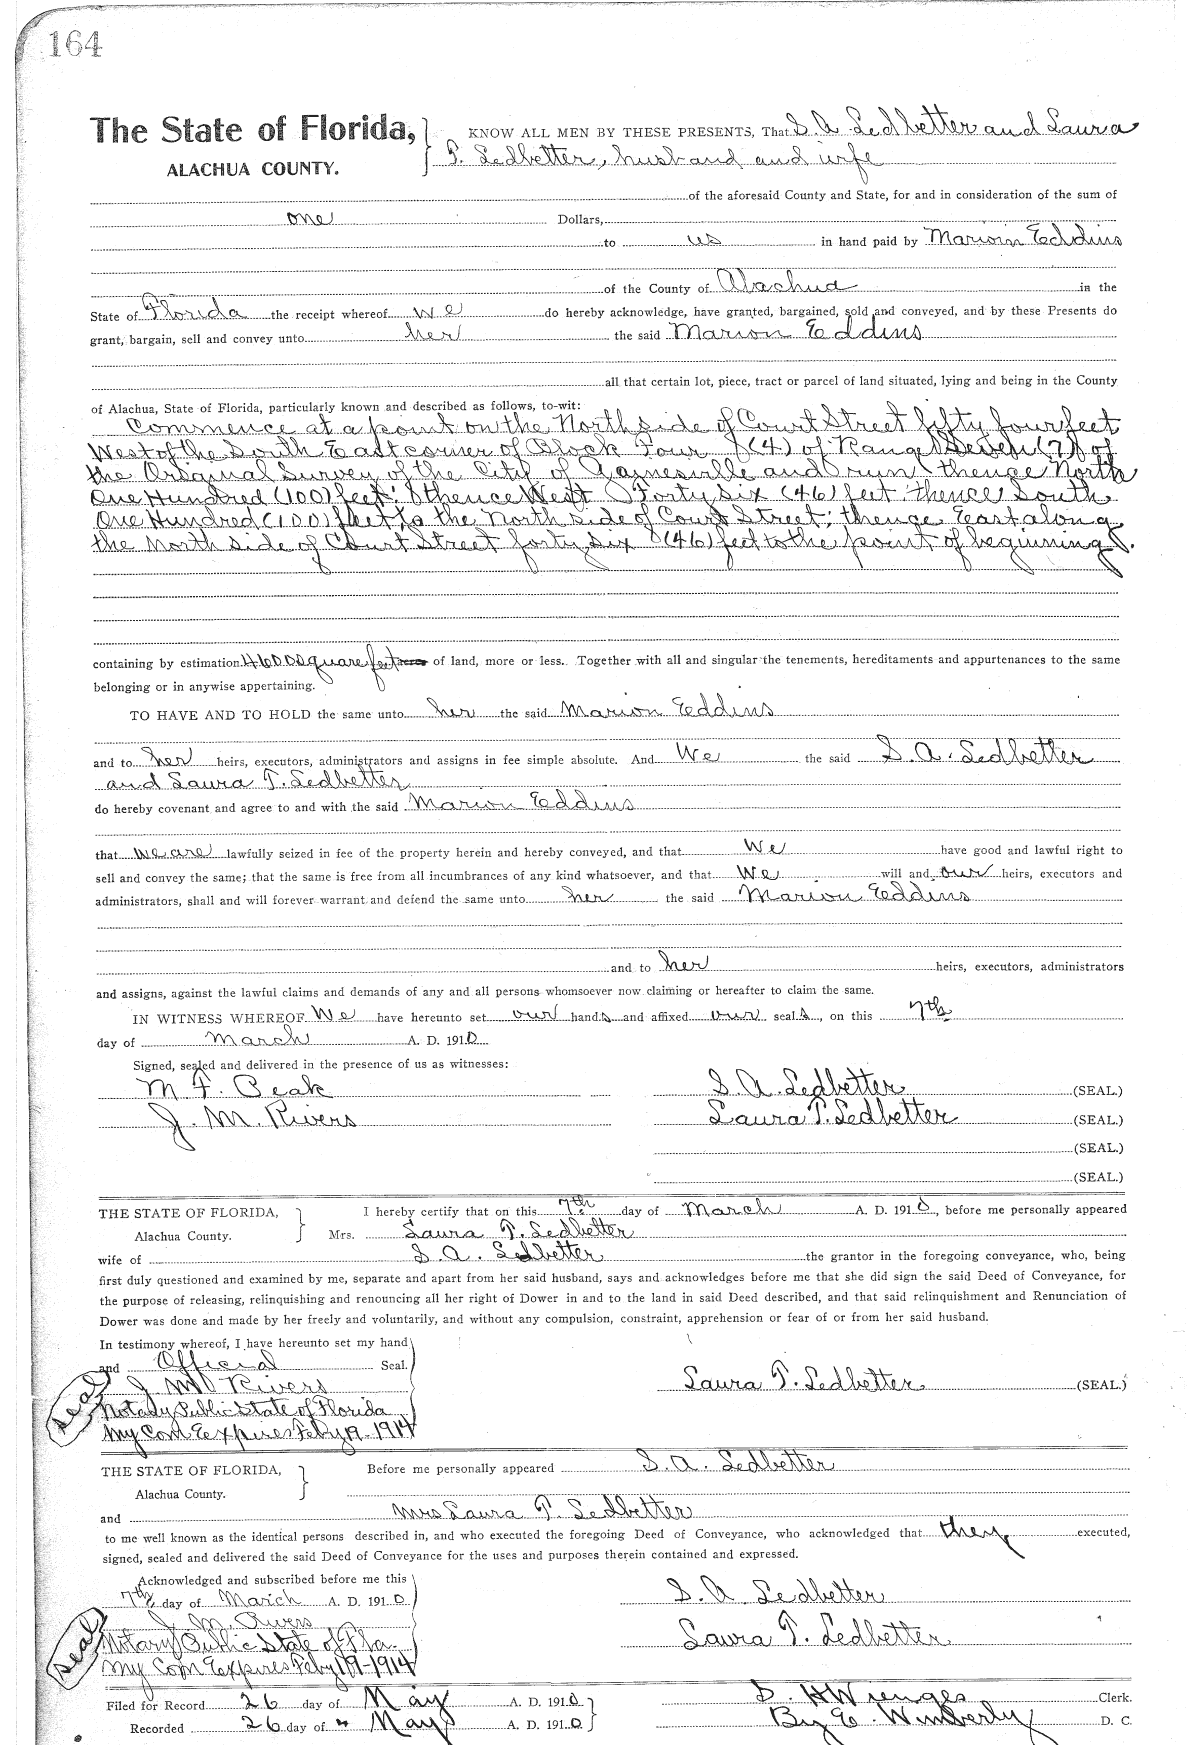 164
The State of Florida, KNOW ALL MEN BY THESE PRESENTS, That S. A. Ledbetter and Laura
ALACHUA COUNTY. T. Ledbetter, husband and wife
of the aforesaid County and State, for and in consideration of the sum of
one Dollars,
to us in hand paid by Marion Eddins
of the County of Alachua in the
State of Florida the receipt whereof we do hereby acknowledge, have granted, bargained, sold and conveyed, and by these Presents do
grant, bargain, sell and convey unto her the said Marion Eddins
all that certain lot, piece, tract or parcel of land situated, lying and being in the County
of Alachua, State of Florida, particularly known and described as follows, to-wit:
Commence at a point on the North side of Court Street fifty four feet
West of the South East corner of Block Four (4) of Range Seven (7) of
the Original Survey of the City of Gainesville and run thence North
One Hundred (100) feet; thence West Forty Six (46) feet thence South
One Hundred (100) feet to the North side of Court Street; thence East along
the North side of Court Street forty six (46) feet to the point of beginning.
containing by estimation 4600 square feet acres of land, more or less. Together with all and singular the tenements, hereditaments and appurtenances to the same
belonging or in anywise appertaining.
TO HAVE AND TO HOLD the same unto her the said Marion Eddins
and to her heirs, executors, administrators and assigns in fee simple absolute. And We the said S. A. Ledbetter
and Laura T. Ledbetter
do hereby covenant and agree to and with the said Marion Eddins
that we are lawfully seized in fee of the property herein and hereby conveyed, and that We have good and lawful right to
sell and convey the same; that the same is free from all incumbrances of any kind whatsoever, and that We will and our heirs, executors and
administrators, shall and will forever warrant and defend the same unto her the said Marion Eddins
and to her heirs, executors, administrators
and assigns, against the lawful claims and demands of any and all persons whomsoever now claiming or hereafter to claim the same.
IN WITNESS WHEREOF We have hereunto set our hands and affixed our seals, on this 7th
day of March A. D. 1910
Signed, sealed and delivered in the presence of us as witnesses:
M. F. Peak S. A. Ledbetter (SEAL.)
J. M. Rivers Laura T. Ledbetter (SEAL.)
(SEAL.)
(SEAL.)
THE STATE OF FLORIDA, I hereby certify that on this 7th day of March A. D. 1910, before me personally appeared
Alachua County. Mrs. Laura T. Ledbetter
wife of S. A. Ledbetter the grantor in the foregoing conveyance, who, being
first duly questioned and examined by me, separate and apart from her said husband, says and acknowledges before me that she did sign the said Deed of Conveyance, for
the purpose of releasing, relinquishing and renouncing all her right of Dower in and to the land in said Deed described, and that said relinquishment and Renunciation of
Dower was done and made by her freely and voluntarily, and without any compulsion, constraint, apprehension or fear of or from her said husband.
In testimony whereof, I have hereunto set my hand
and Official Seal.
seal J. M. Rivers Laura T. Ledbetter (SEAL.)
Notary Public State of Florida
My Com Expires Feby 19-1914
THE STATE OF FLORIDA, Before me personally appeared S. A. Ledbetter
Alachua County.
and Mrs Laura T. Ledbetter
to me well known as the identical persons described in, and who executed the foregoing Deed of Conveyance, who acknowledged that they executed,
signed, sealed and delivered the said Deed of Conveyance for the uses and purposes therein contained and expressed.
Acknowledged and subscribed before me this
7th day of March A. D. 1910 S. A. Ledbetter
J. M. Rivers
seal Notary Public State of Fla. Laura T. Ledbetter
My Com Expires Feby 19-1914
Filed for Record 26 day of May A. D. 1910 S. H. Wienges Clerk.
Recorded 26 day of " May A. D. 1910 By E. Wimberly D. C.